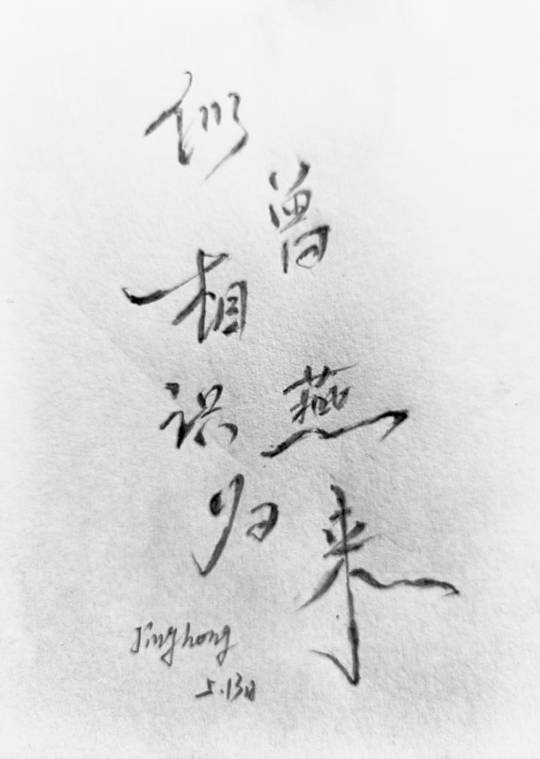 似曾相识燕归来
Jinghong
5.13日